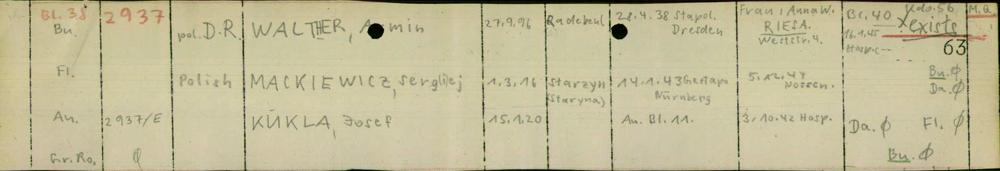 Bl. 38 2937 pol. D.R. WALTHER, Armin 27.9.96 Radebeul 28.4.38 Stapol. Frau: Anna W. Bc. 40 56 M.Q.
Bu. Dresden RIESA. 16.1.45 exists
Weststr. 4. 63
Fl. Polish MACKIEWICZ, Serghej 1.3.16 Starzyn 14.1.43 Gestapo 5.12.44 Bu. Ø
(Staryna) Nürnberg Nossen. Da. Ø
Au. 2937/E KUKLA, Josef 15.1.20 Au. Bl. 11. 3.10.42 Hosp. Da. Ø Fl. Ø
Gr. Ro. Ø Bu. Ø